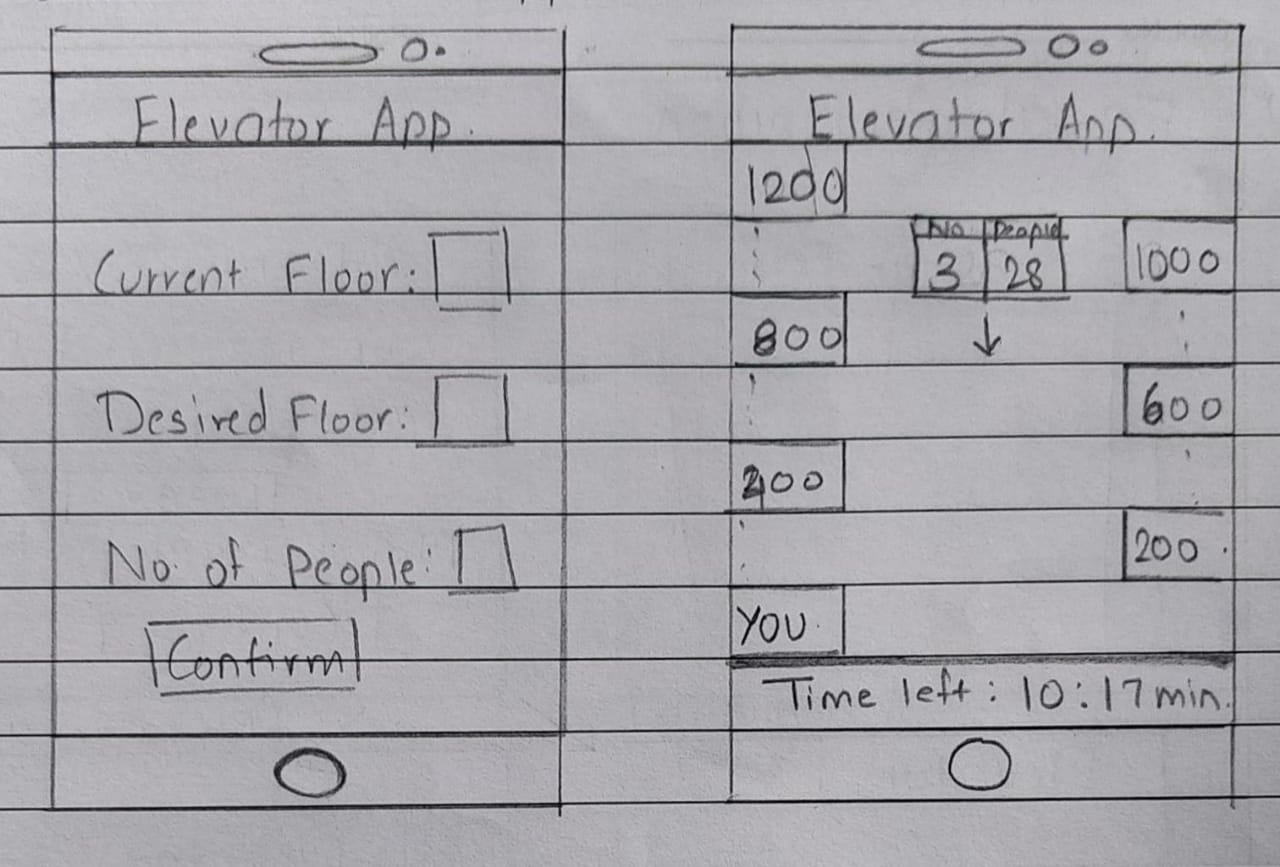 Elevator App.
Current Floor:
Desired Floor:
No. of People:
Confirm
Elevator App.
1200
No. People
3 28
1000
800
600
400
200
YOU
Time left: 10:17 min.